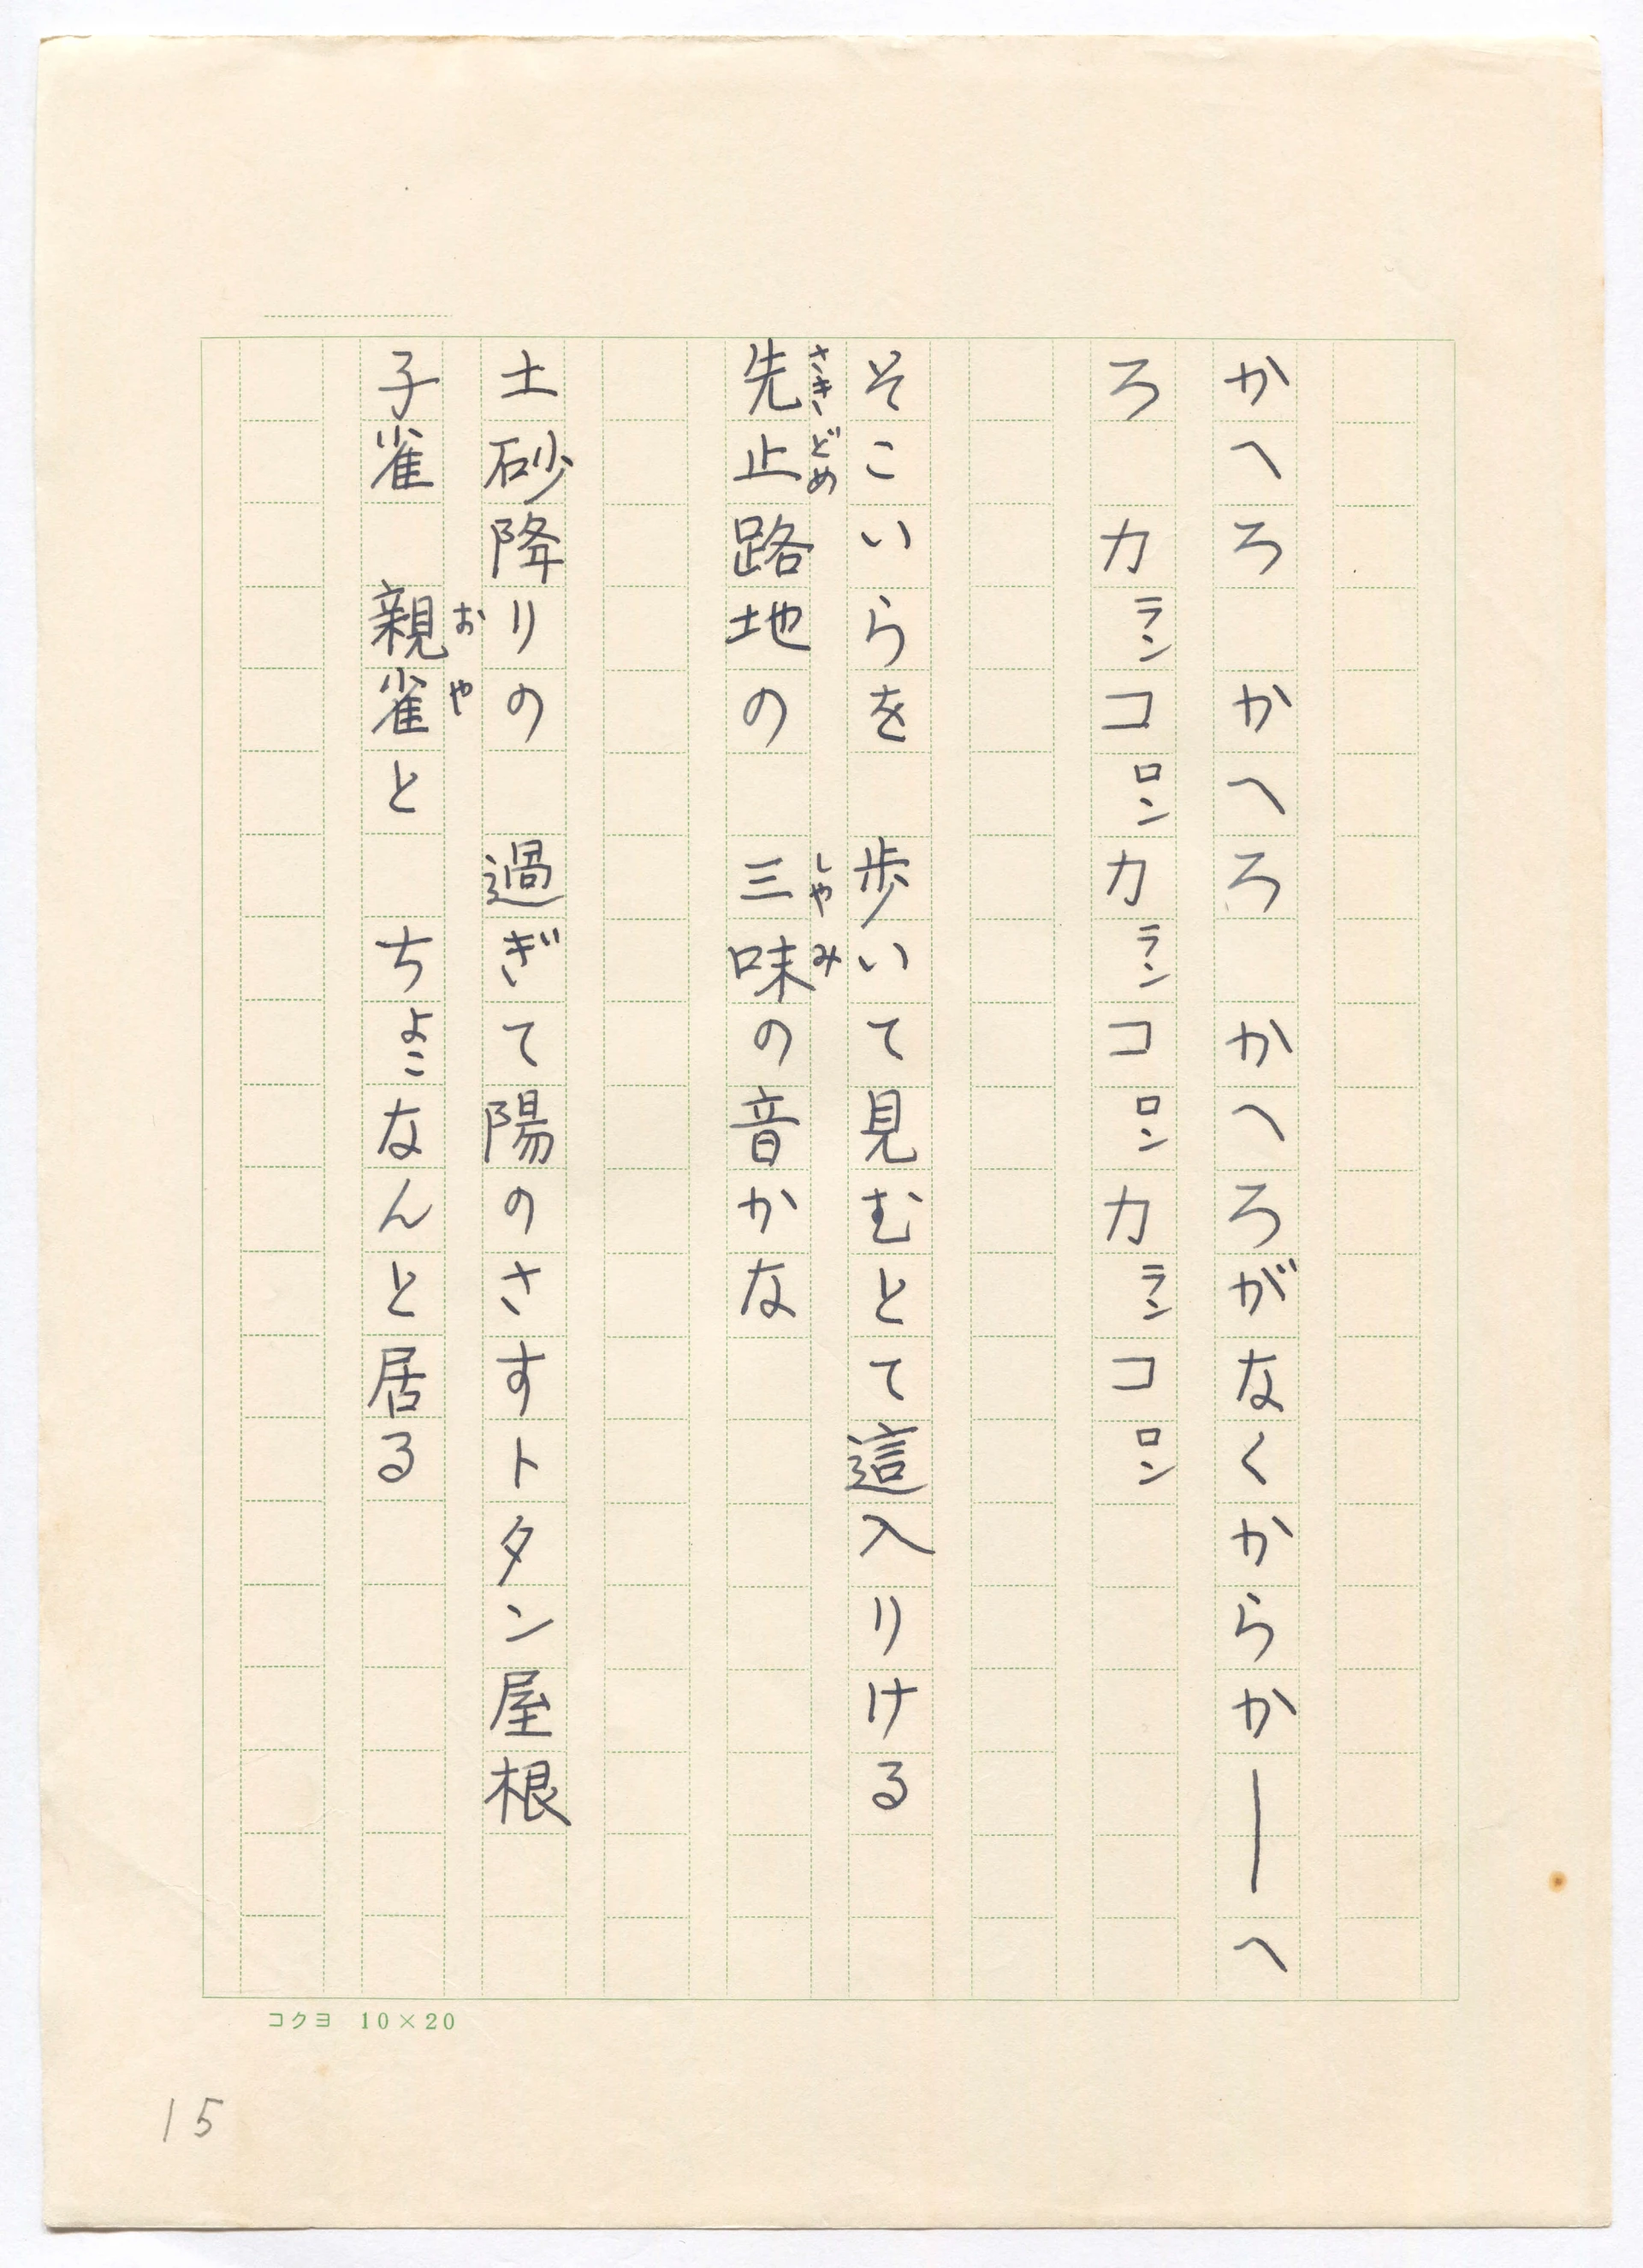 かへろ　かへろ　かへろがなくからか――へ
ろ　カランコロンカランコロンカランコロン
そこいらを　歩いて見むとて這入りける
さきどめ　しやみ
先止路地の　三味の音かな
土砂降りの　過ぎて陽のさすトタン屋根
おや
子雀　親雀と　ちよこなんと居る
コクヨ　10×20
15